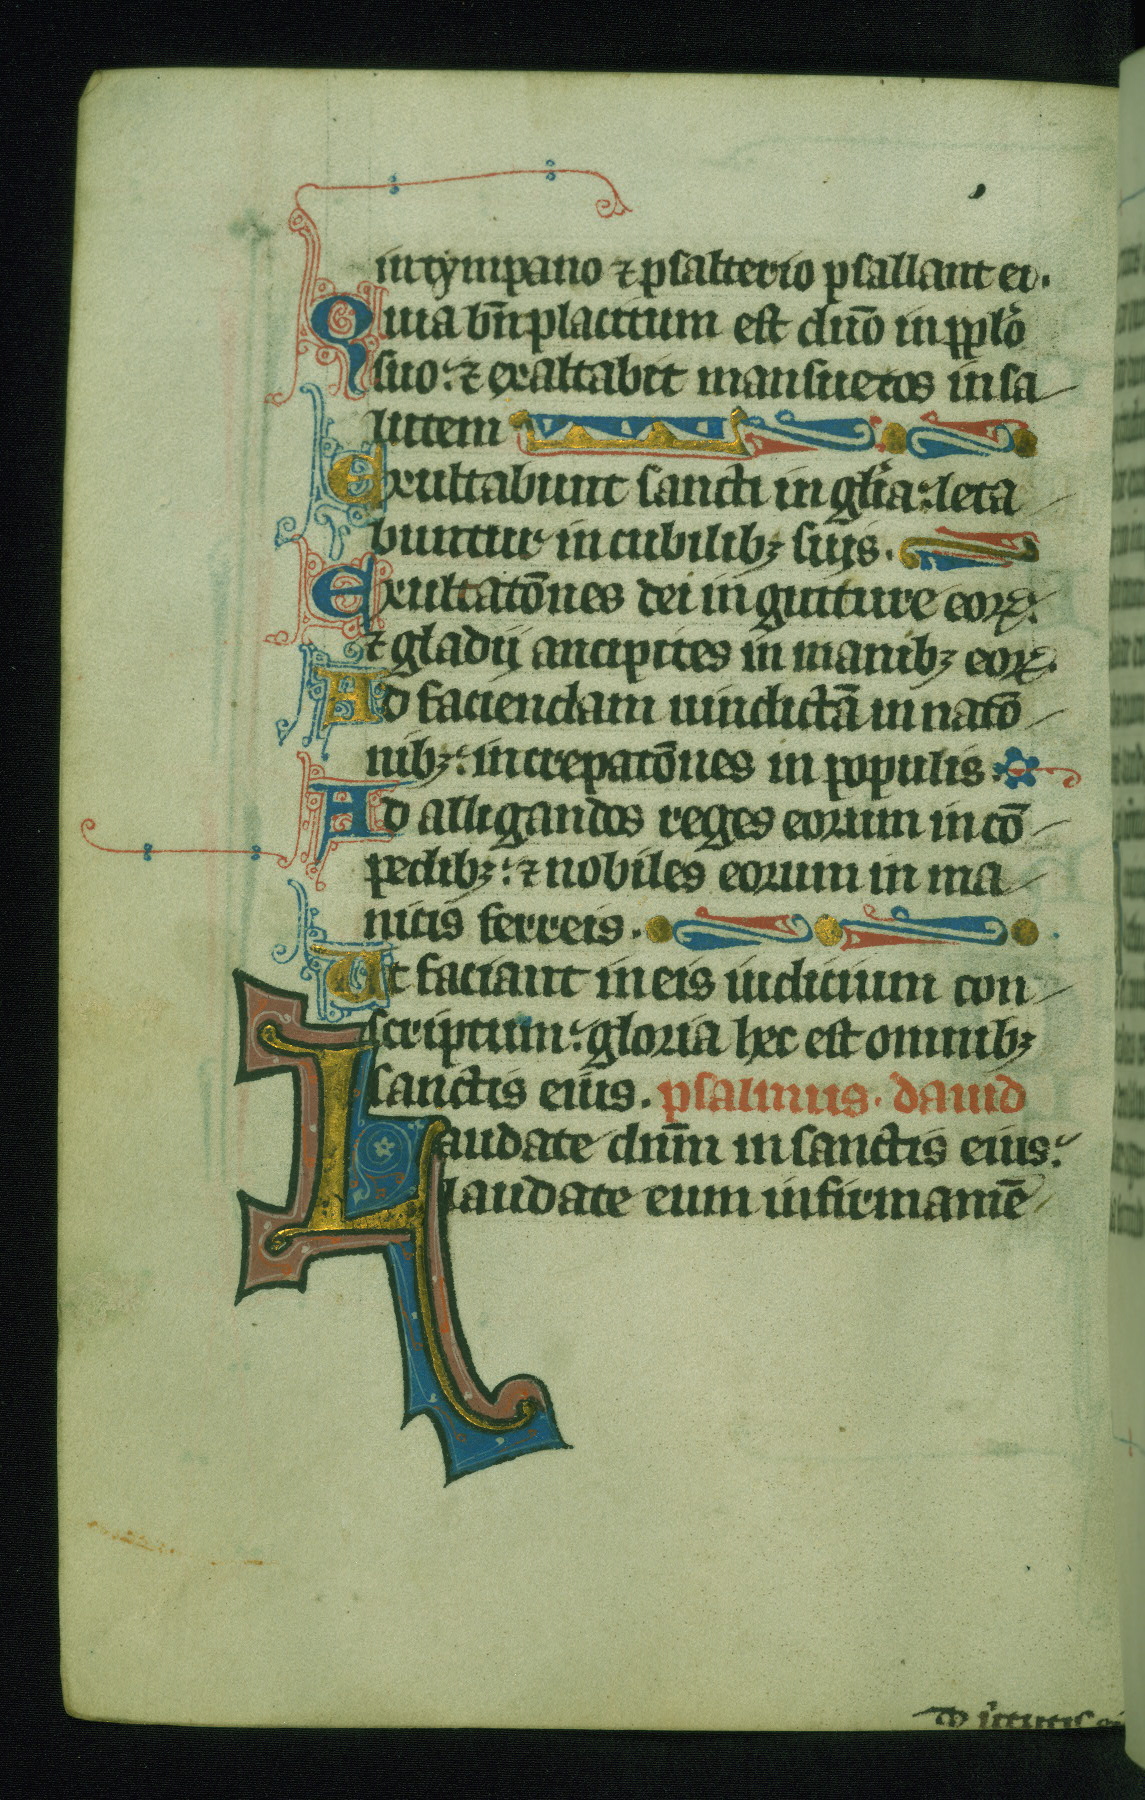 in tympano ⁊ psalterio psallant ei.
Quia bn̄ placitum est dn̄o in pplo
suo: ⁊ exaltabit mansuetos in sa
lutem
Exultabunt sancti in gl̄ia: leta
buntur in cubilibꝫ suis.
Exultatōnes dei in gutture eoꝝ:
⁊ gladii ancipites in manibꝫ eoꝝ.
Ad faciendam uindictā in natō
nibꝫ: increpatōnes in populis.
Ad alligandos reges eorum in cō
pedibꝫ: ⁊ nobiles eorum in ma
nicis ferreis.
Ut faciant in eis iudicium con
scriptum: gloria hec est omnibꝫ
sanctis eius. psalmus. dauid
Laudate dn̄m in sanctis eius:
laudate eum in firmamē